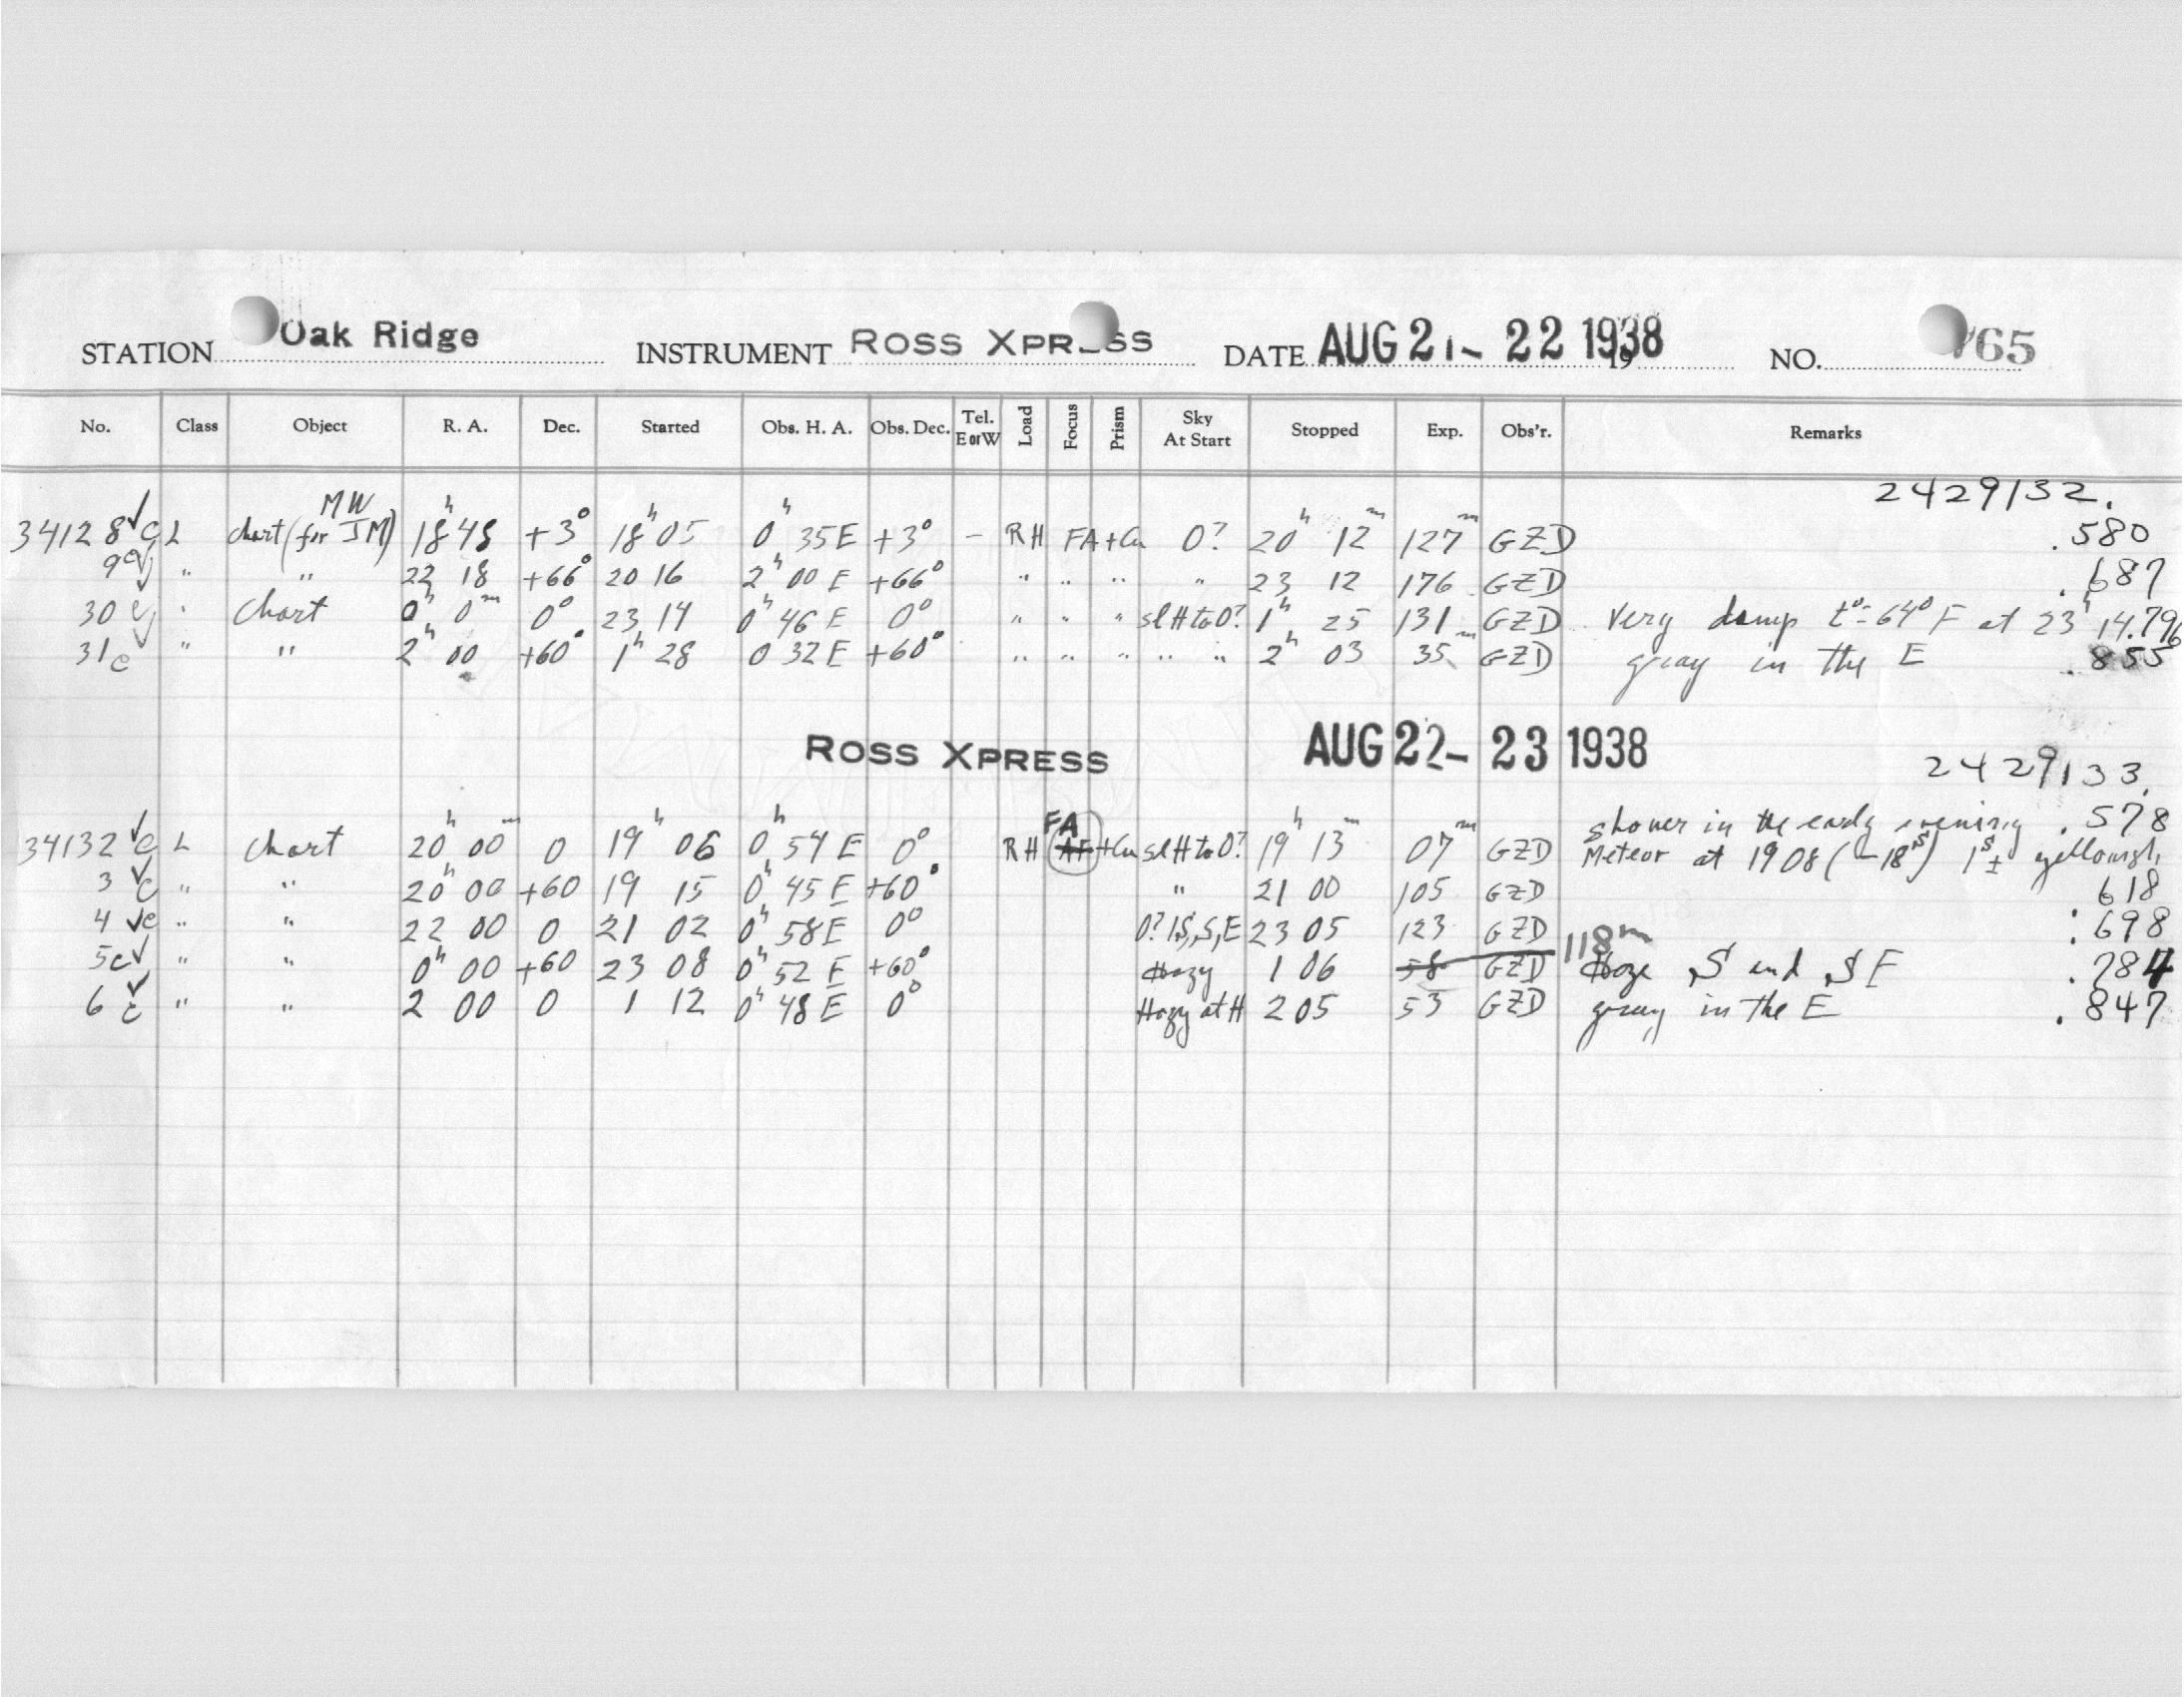 STATION Oak Ridge INSTRUMENT ROSS XPRESS DATE AUG 21-22 1938 19 NO. 65
No. Class Object R. A. Dec. Started Obs. H. A. Obs. Dec. Tel. E or W Load Focus Prism Sky At Start Stopped Exp. Obs'r. Remarks
2429132.
MW
34128 ✓ c L chart (for JM) 18h 48 +3° 18h 05 0h 35E +3° - RH FA +Cu 0? 20h 12m 127m GZD .580
9 c ✓ " " 22 18 +66° 20 16 2h 00 E +66° " " " " 23 12 176 GZD .687
30 c ✓ " Chart 0h 0m 0° 23 14 0h 46 E 0° " " " sl H to 0? 1h 25 131 GZD Very damp t°= 64° F at 23h 14 .796
31 c ✓ " " 2h 00 +60° 1h 28 0 32 E +60° " " " " " 2h 03 35m GZD gray in the E .855
ROSS XPRESS AUG 22-23 1938
2429133.
34132 ✓ c L Chart 20h 00m 0 19h 06 0h 54 E 0° RH FA AF +Cu sl H to 0? 19h 13m 07m GZD shower in the early evening .578
Meteor at 19 08 (-18s) 1s ± yellowish
3 ✓ c " " 20h 00 +60 19 15 0h 45 E +60° " 21 00 105 GZD .618
4 ✓ c " " 22 00 0 21 02 0h 58 E 0° 0? 1S,S,E 23 05 123 GZD .698
5 c ✓ " " 0h 00 +60 23 08 0h 52 E +60° Hazy 1 06 58 GZD 118m Haze S and SE .784
6 ✓ c " " 2 00 0 1 12 0h 48 E 0° Hazy at H 2 05 53 GZD gray in the E .847